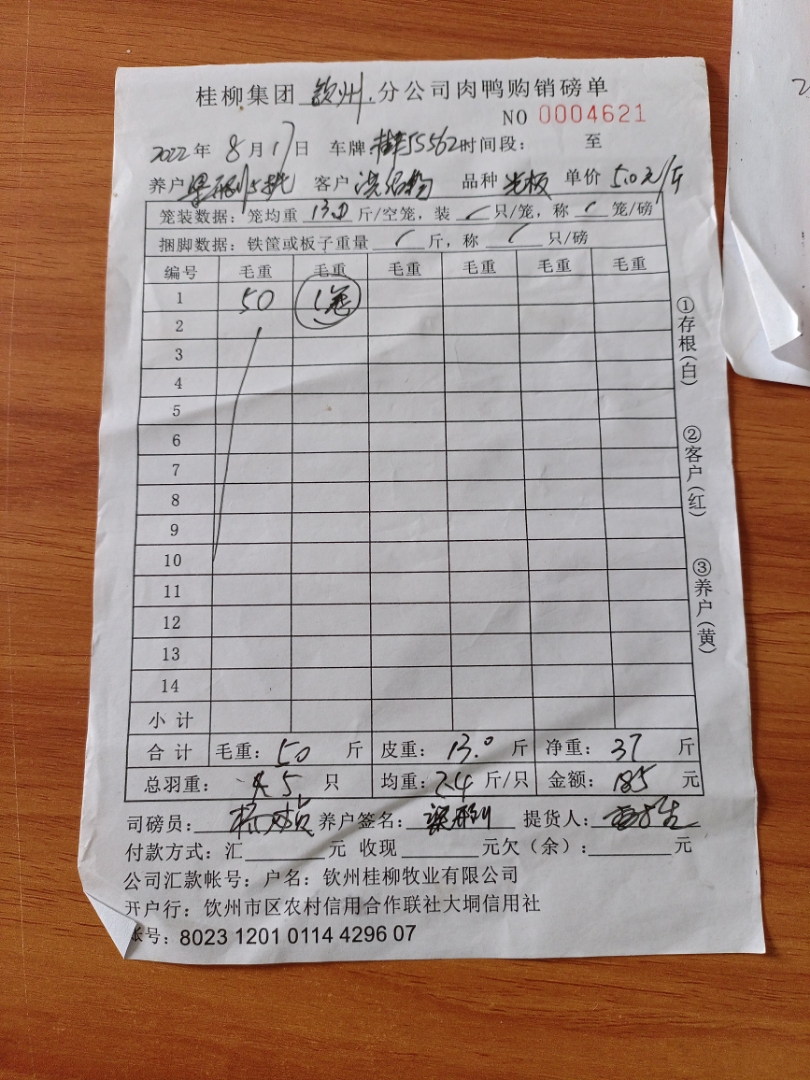 桂柳集团 钦州 分公司肉鸭购销磅单
NO 0004621
2022年 8月17日 车牌 55562 时间段： 至
养户 客户 品种 光板 单价 5.0元/斤
笼装数据：笼均重 13.0 斤/空笼，装 / 只/笼，称 / 笼/磅
捆脚数据：铁筐或板子重量 / 斤，称 / 只/磅
编号 毛重 毛重 毛重 毛重 毛重 毛重
1 50 1笼
2
3
4
5
6
7
8
9
10
11
12
13
14
小计
合计 毛重：50 斤 皮重：13.0 斤 净重：37 斤
总羽重： 5 只 均重：7.4 斤/只 金额：185 元
司磅员： 养户签名： 提货人：
付款方式：汇 元 收现 元欠（余）： 元
公司汇款帐号：户名：钦州桂柳牧业有限公司
开户行：钦州市区农村信用合作联社大垌信用社
帐号：8023 1201 0114 4296 07
①存根(白)
②客户(红)
③养户(黄)